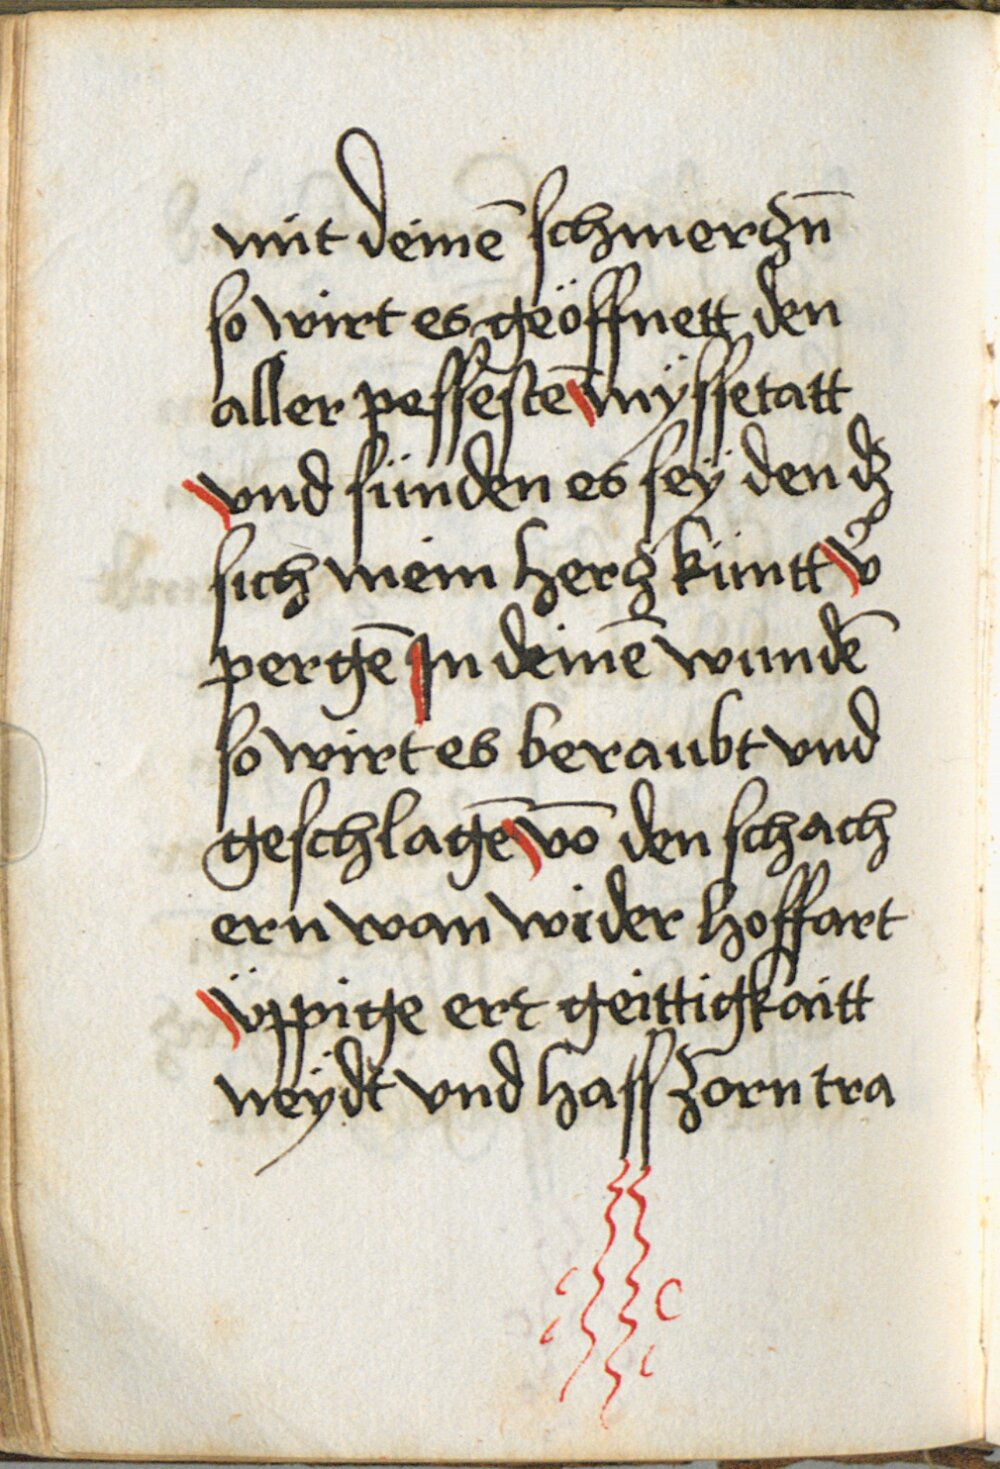 mit deinē schmerczn̄
so wirt es geöffnett den
aller pessestē mÿssetatt
vnd sünden es seÿ den dz
sich mein hercz kümtt v̉
pergē In deinē wundē
so wirt es beraubt vnd
geschlagē vō den schach
ern wan wider hoffart
üppige ert geittigkaitt
neÿdt vnd hass zorn tra